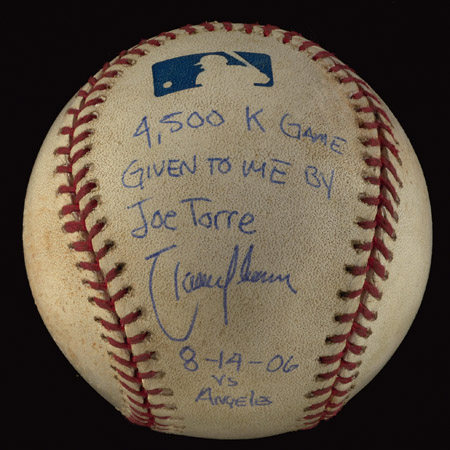 4,500 K GAME
GIVEN TO ME BY
Joe Torre
Randy Johnson
8-14-06
VS
ANGELES